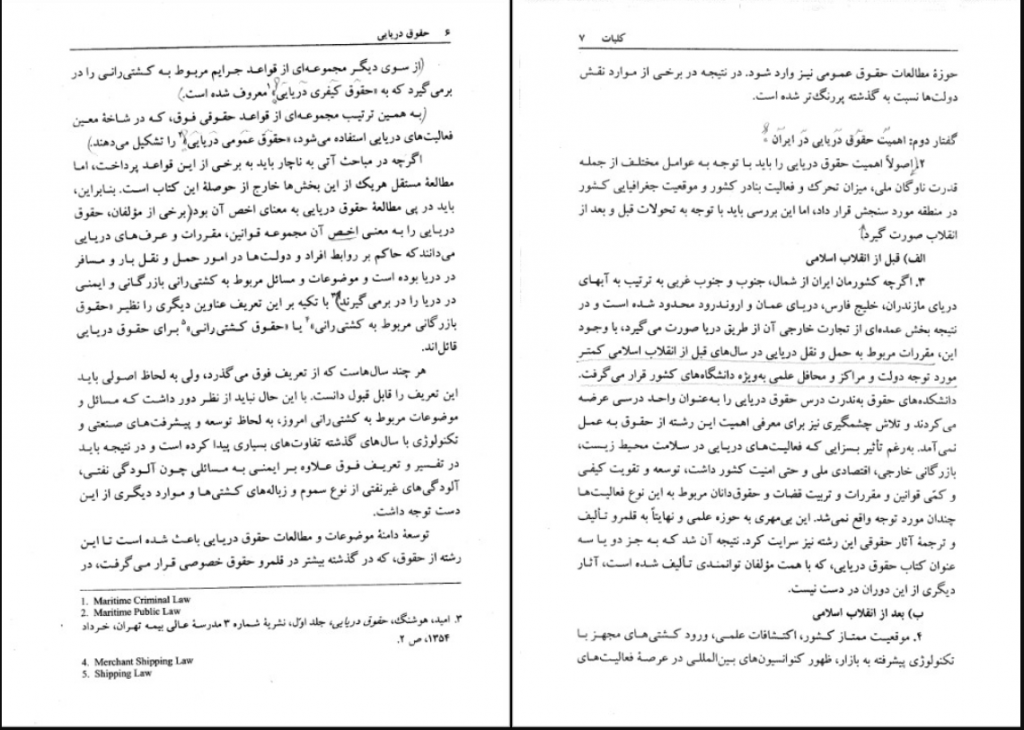 ۶ حقوق دریایی
(از سوی دیگر مجموعه‌ای از قواعد جرایم مربوط به کشتی‌رانی را در
برمی‌گیرد که به «حقوق کیفری دریایی»۱ معروف شده است.)
(به همین ترتیب مجموعه‌ای از قواعد حقوقی فوق، که در شاخهٔ معین
فعالیت‌های دریایی استفاده می‌شود، «حقوق عمومی دریایی»۲ را تشکیل می‌دهند.)
اگرچه در مباحث آتی به ناچار باید به برخی از این قواعد پرداخت، اما
مطالعهٔ مستقل هریک از این بخش‌ها خارج از حوصلهٔ این کتاب است. بنابراین،
باید در پی مطالعهٔ حقوق دریایی به معنای اخص آن بود(برخی از مؤلفان، حقوق
دریایی را به معنی اخص آن مجموعه قوانین، مقررات و عرف‌های دریایی
می‌دانند که حاکم بر روابط افراد و دولت‌ها در امور حمل و نقل بار و مسافر
در دریا بوده است و موضوعات و مسائل مربوط به کشتی‌رانی بازرگانی و ایمنی
در دریا را در برمی‌گیرند)۳ با تکیه بر این تعریف عناوین دیگری را نظیر «حقوق
بازرگانی مربوط به کشتی‌رانی»۴ یا «حقوق کشتی‌رانی»۵ برای حقوق دریایی
قائل‌اند.
هر چند سال‌هاست که از تعریف فوق می‌گذرد، ولی به لحاظ اصولی باید
این تعریف را قابل قبول دانست. با این حال نباید از نظر دور داشت که مسائل و
موضوعات مربوط به کشتی‌رانی امروز، به لحاظ توسعه و پیشرفت‌های صنعتی و
تکنولوژی با سال‌های گذشته تفاوت‌های بسیاری پیدا کرده است و در نتیجه باید
در تفسیر و تعریف فوق علاوه بر ایمنی به مسائلی چون آلودگی نفتی،
آلودگی‌های غیرنفتی از نوع سموم و زباله‌های کشتی‌ها و موارد دیگری از این
دست توجه داشت.
توسعهٔ دامنهٔ موضوعات و مطالعات حقوق دریایی باعث شده است تا این
رشته از حقوق، که در گذشته بیشتر در قلمرو حقوق خصوصی قرار می‌گرفت، در
1. Maritime Criminal Law
2. Maritime Public Law
۳. امید، هوشنگ، حقوق دریایی، جلد اوّل، نشریهٔ شماره ۳ مدرسهٔ عالی بیمه تهران، خرداد
۱۳۵۴، ص ۲.
4. Merchant Shipping Law
5. Shipping Law
کلیات ۷
حوزهٔ مطالعات حقوق عمومی نیز وارد شود. در نتیجه در برخی از موارد نقش
دولت‌ها نسبت به گذشته پررنگ‌تر شده است.
گفتار دوم: اهمیت حقوق دریایی در ایران
۲. اصولاً اهمیت حقوق دریایی را باید با توجه به عوامل مختلف از جمله
قدرت ناوگان ملی، میزان تحرک و فعالیت بنادر کشور و موقعیت جغرافیایی کشور
در منطقه مورد سنجش قرار داد، اما این بررسی باید با توجه به تحولات قبل و بعد از
انقلاب صورت گیرد.
الف) قبل از انقلاب اسلامی
۳. اگرچه کشورمان ایران از شمال، جنوب و جنوب غربی به ترتیب به آبهای
دریای مازندران، خلیج فارس، دریای عمان و اروندرود محدود شده است و در
نتیجه بخش عمده‌ای از تجارت خارجی آن از طریق دریا صورت می‌گیرد، با وجود
این، مقررات مربوط به حمل و نقل دریایی در سال‌های قبل از انقلاب اسلامی کمتر
مورد توجه دولت و مراکز و محافل علمی به‌ویژه دانشگاه‌های کشور قرار می‌گرفت.
دانشکده‌های حقوق به‌ندرت درس حقوق دریایی را به‌عنوان واحد درسی عرضه
می‌کردند و تلاش چشمگیری نیز برای معرفی اهمیت این رشته از حقوق به عمل
نمی‌آمد. به‌رغم تأثیر بسزایی که فعالیت‌های دریایی در سلامت محیط زیست،
بازرگانی خارجی، اقتصادی ملی و حتی امنیت کشور داشت، توسعه و تقویت کیفی
و کمّی قوانین و مقررات و تربیت قضات و حقوق‌دانان مربوط به این نوع فعالیت‌ها
چندان مورد توجه واقع نمی‌شد. این بی‌مهری به حوزه علمی و نهایتاً به قلمرو تألیف
و ترجمهٔ آثار حقوقی این رشته نیز سرایت کرد. نتیجه آن شد که به جز دو یا سه
عنوان کتاب حقوق دریایی، که با همت مؤلفان توانمندی تألیف شده است، آثار
دیگری از این دوران در دست نیست.
ب) بعد از انقلاب اسلامی
۴. موقعیت ممتاز کشور، اکتشافات علمی، ورود کشتی‌های مجهز با
تکنولوژی پیشرفته به بازار، ظهور کنوانسیون‌های بین‌المللی در عرصهٔ فعالیت‌های